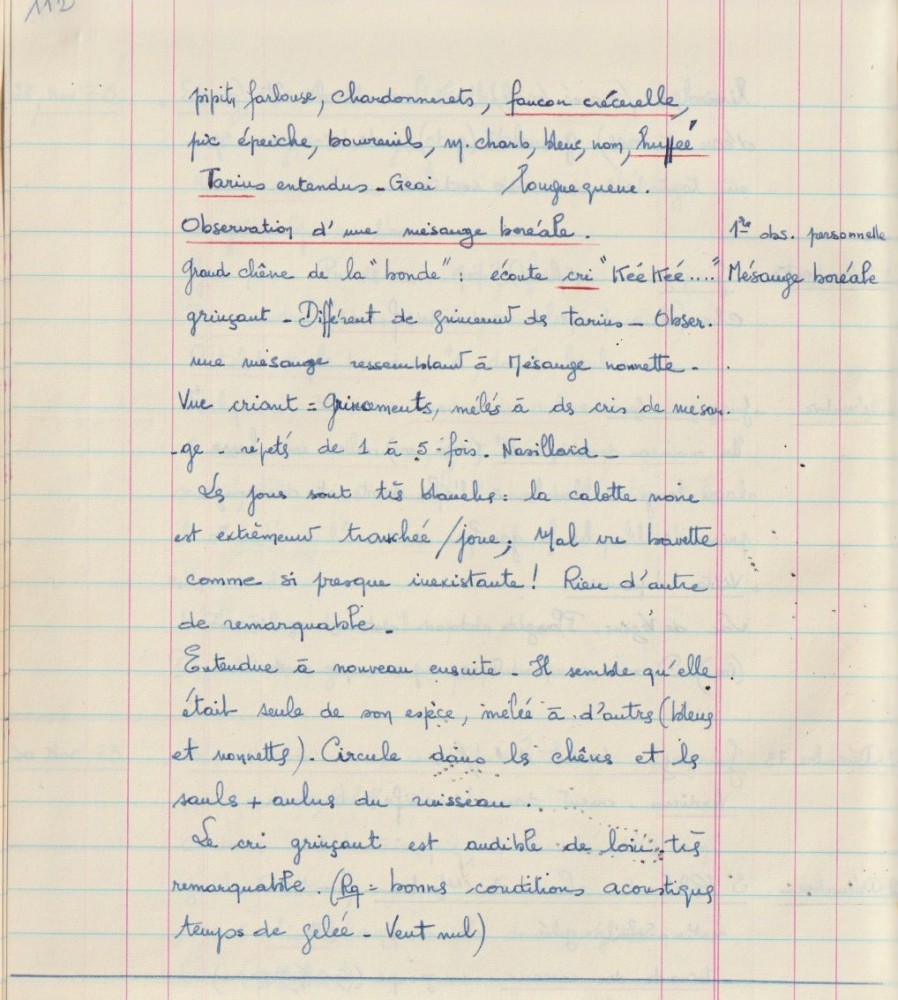 112
pipits farlouse, chardonnerets, faucon crécerelle,
pic épeiche, bouvreuils, m. charb, bleue, nonn, huppée
Tarins entendus - Geai Rougequeue.
Observation d'une mésange boréale. 1re obs. personnelle
Grand chêne de la "bonde" : écoute cri "Kéé Kéé...." Mésange boréale
grinçant - Différent de grincement ds tarins - Obser.
une mésange ressemblant à Mésange nonnette -
Vue criant = Grincements, mêlés à ds cris de mésan.
-ge - répetés de 1 à 5 fois. Nasillard -
Ls joues sont très blanches : la calotte noire
est extrêment tranchée /joue; Mal vu bavette
comme si presque inexistante ! Rien d'autre
de remarquable -
Entendue à nouveau ensuite - Il semble qu'elle
était seule de son espèce, mêlée à d'autrs (bleus
et nonnetts). Circule dans ls chêns et ls
sauls + aulns du ruisseau.
Le cri grinçant est audible de loin - très
remarquable. (Rq = bonns conditions acoustiqus
temps de gelée - Vent nul)